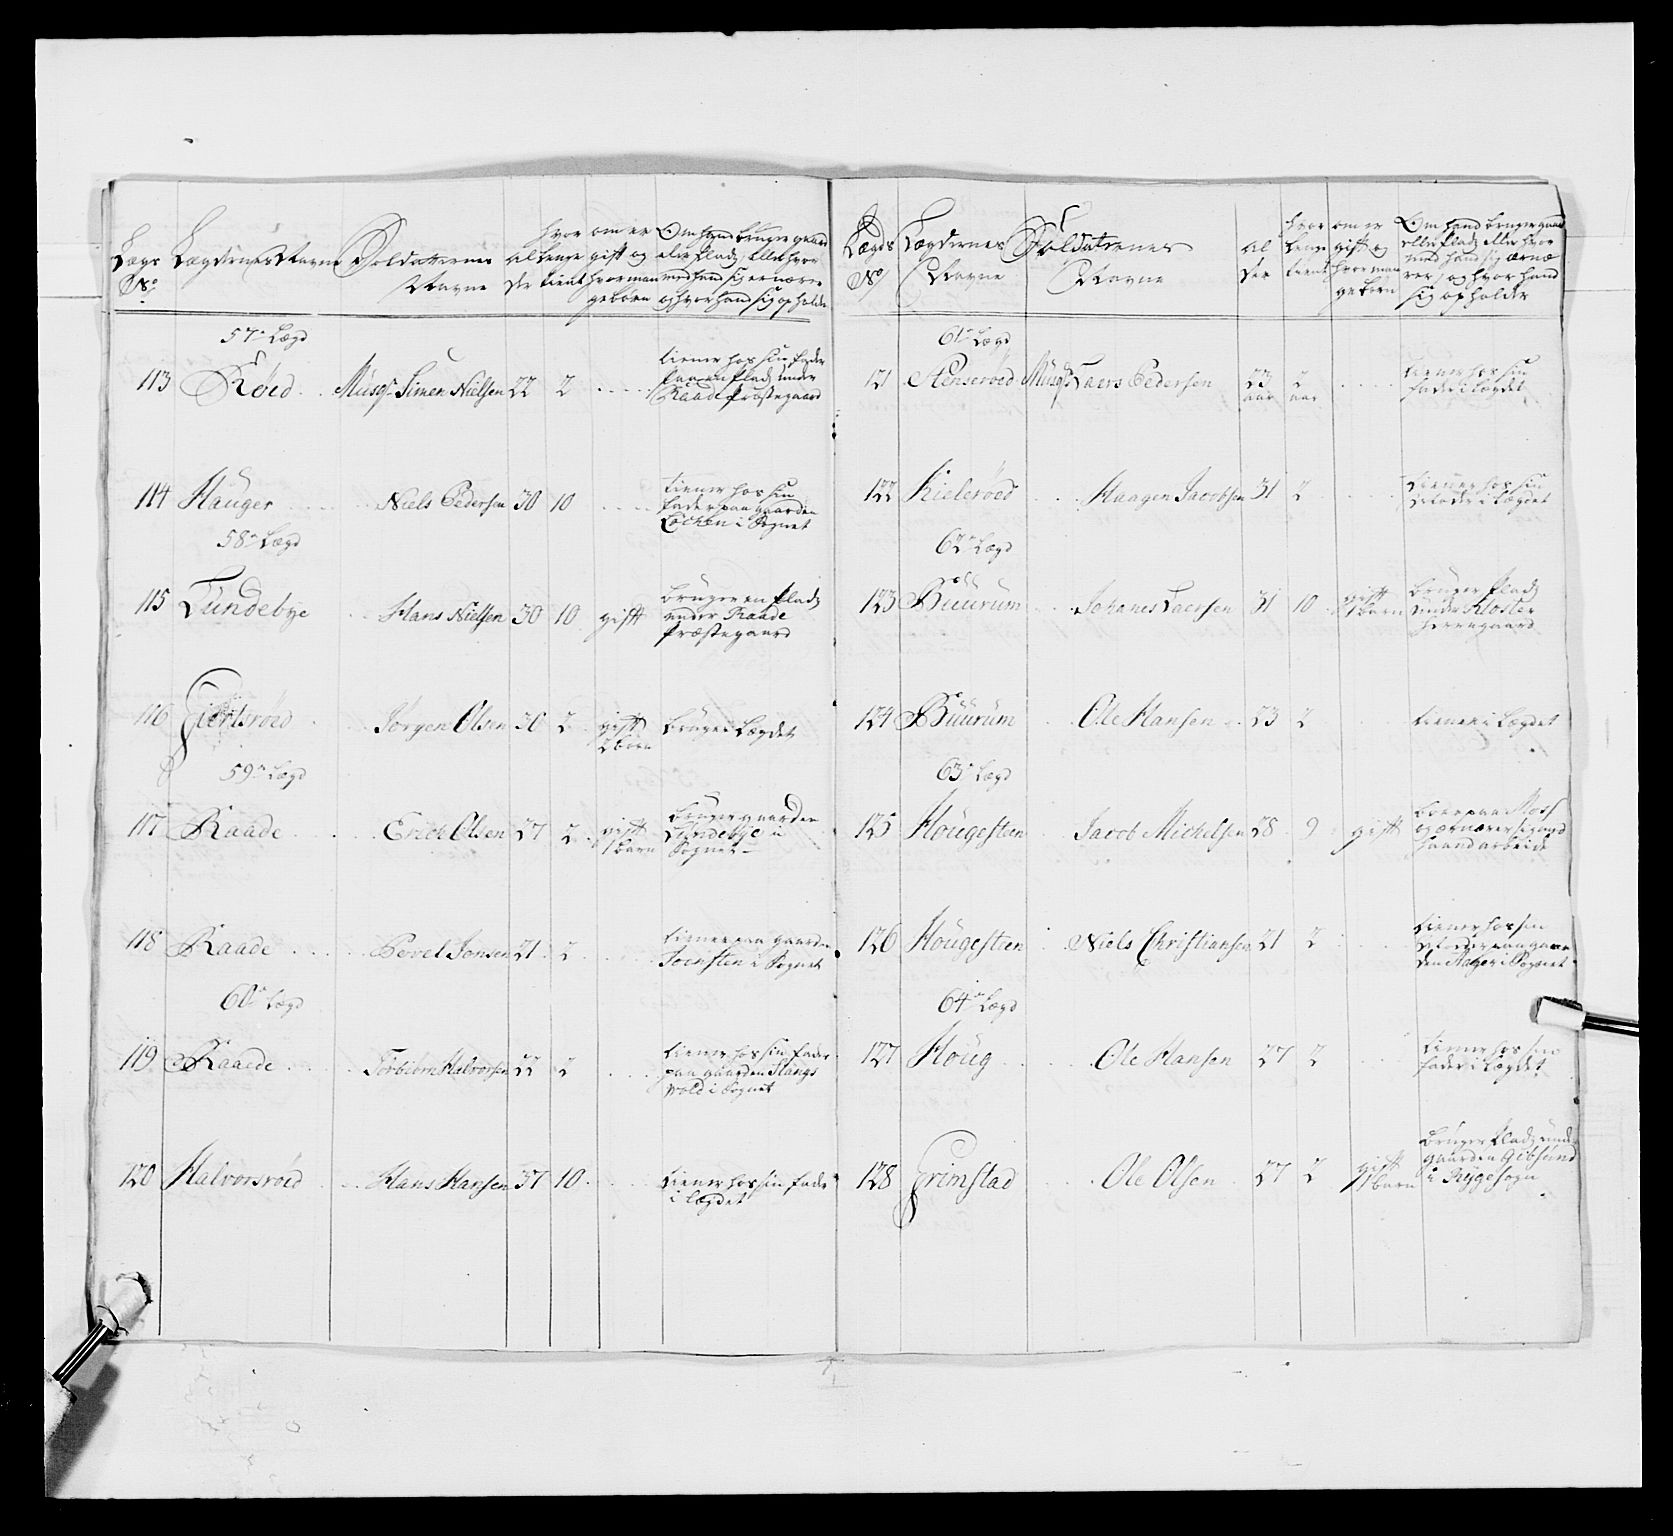 Lægs No
Lægdernes Navne
Soldatternes Navne
alder
hvor længe tient
om er gift og hvor man geboren
Om hand bruger gaard eller Plads, eller hvor ved hand sig ernærer og hvor hand sig opholder
57de Lægd
113 Røed Musqr Simen Nielsen 22 2 tiener hos sin fader paa en Plads under Raade Præstegaard
114 Hauger Niels Pedersen 30 10 tiener hos sin fader paa gaarden i Sognet
58de Lægd
115 Lundebye Hans Nielsen 30 10 gift bruger en Plads under Raade Præstegaard
116 Jørgen Olsen 30 2 gift 2 born bruger Lægdet
59de Lægd
117 Raade Erich Olsen 27 2 gift 1 barn bruger gaarden Lundebye i Sognet
118 Raade Povel Jonsen 21 2 tiener paa gaarden i Sognet
60de Lægd
119 Raade Torbiörn Halvorsen 22 2 tiener hos sin fader paa gaarden Slangs vold i Sognet
120 Halvorsröed Hans Hansen 37 10 tiener hos sin fader i Lægdet
Lægds No
Lægdernes Navne
Soldaternes Navne
alder
hvor længe tient
om er gift og hvor man geborn
Om hand bruger gaard eller Plads eller hvor ved hand sig ærnærer, og hvor hand sig opholder
61de Lægd
121 Stenseröed Musqr Laers Pedersen 23 aar 2 aar tiener hos sin fader i Lægdet
122 Kieleröed Haagen Jacobsen 31 2 tiener hos sin i Lægdet
62de Lægd
123 Buurum Johanes Laersen 31 10 gift 1 barn bruger Plads under Kloster herregaard
124 Buurum Ole Hansen 23 2 tiener i Lægdet
63de Lægd
125 Hougesteen Jacob Michelsen 28 9 gift boer paa Moss og ernærer sig med haand arbeide
126 Hougesteen Niels Christiansen 21 2 tiener hos sin paa gaarden Hager i Sognet
64de Lægd
127 Houg Ole Hansen 27 2 tiener hos sin fader i Lægdet
128 Grimstad Ole Olsen 27 2 gift 1 barn bruger Plads under gaarden Gibsund i Rygge sogn